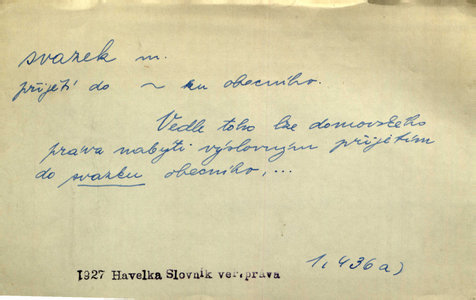 svazek m.
přijetí do ~ ku obecního.
Vedle toho lze domovského
práva nabýti výslovným přijetím
do svazku obecního,...
1, 436a)
1927 Havelka Slovník veř.práva